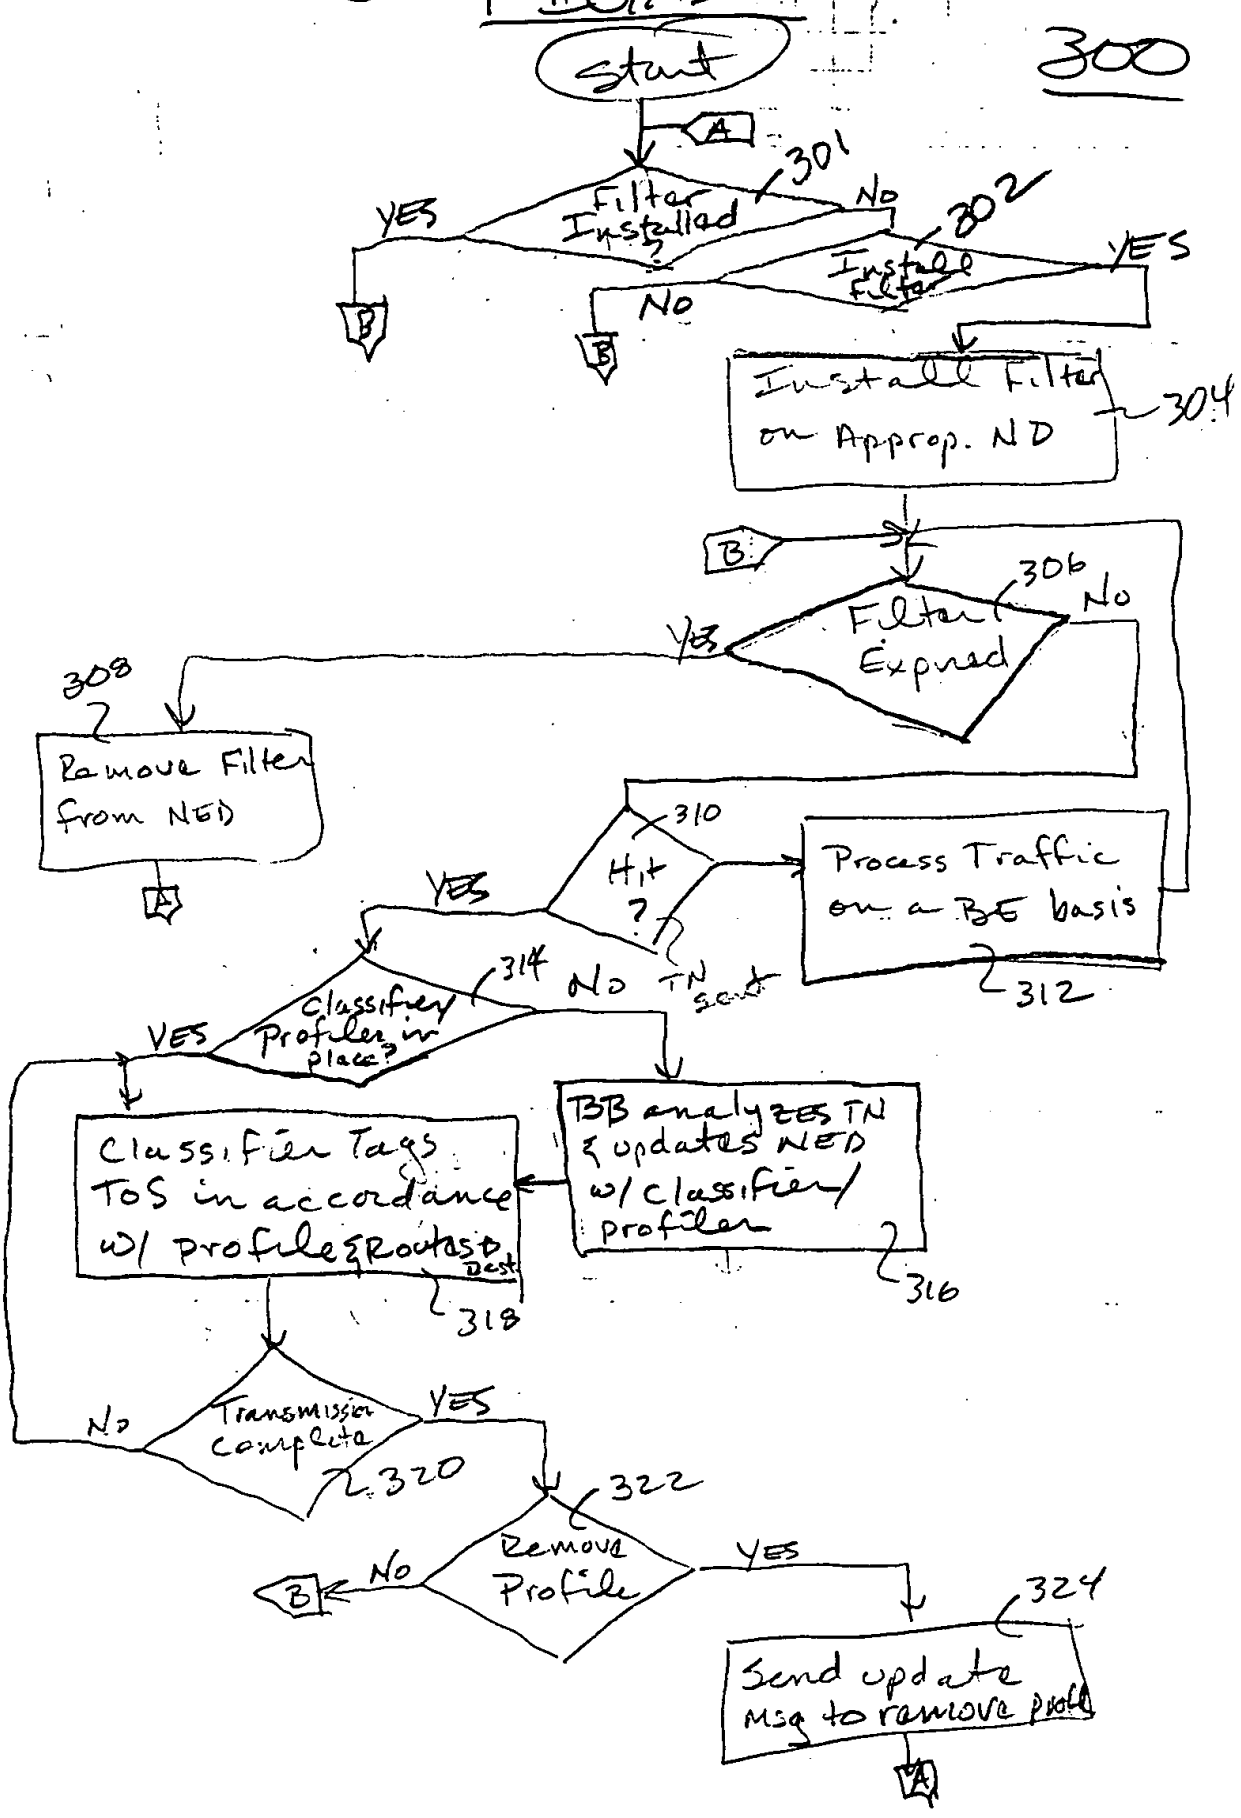 300
Start
A
301
Filter
Installed
?
YES
No
302
Install
Filter
YES
No
B
B
Install Filter
on Approp. ND
304
B
306
Filter
Expired
YES
No
308
Remove Filter
from NED
A
310
Hit
?
YES
TN
sent
Process Traffic
on a BE basis
312
314
Classifier/
Profiler in
place?
YES
No
BB analyzes TN
& updates NED
w/ classifier/
profiler
316
Classifier Tags
ToS in accordance
w/ profile & Routes to
Dest
318
Transmission
Complete
320
No
YES
322
Remove
Profile
No
B
YES
324
Send update
Msg to remove
A